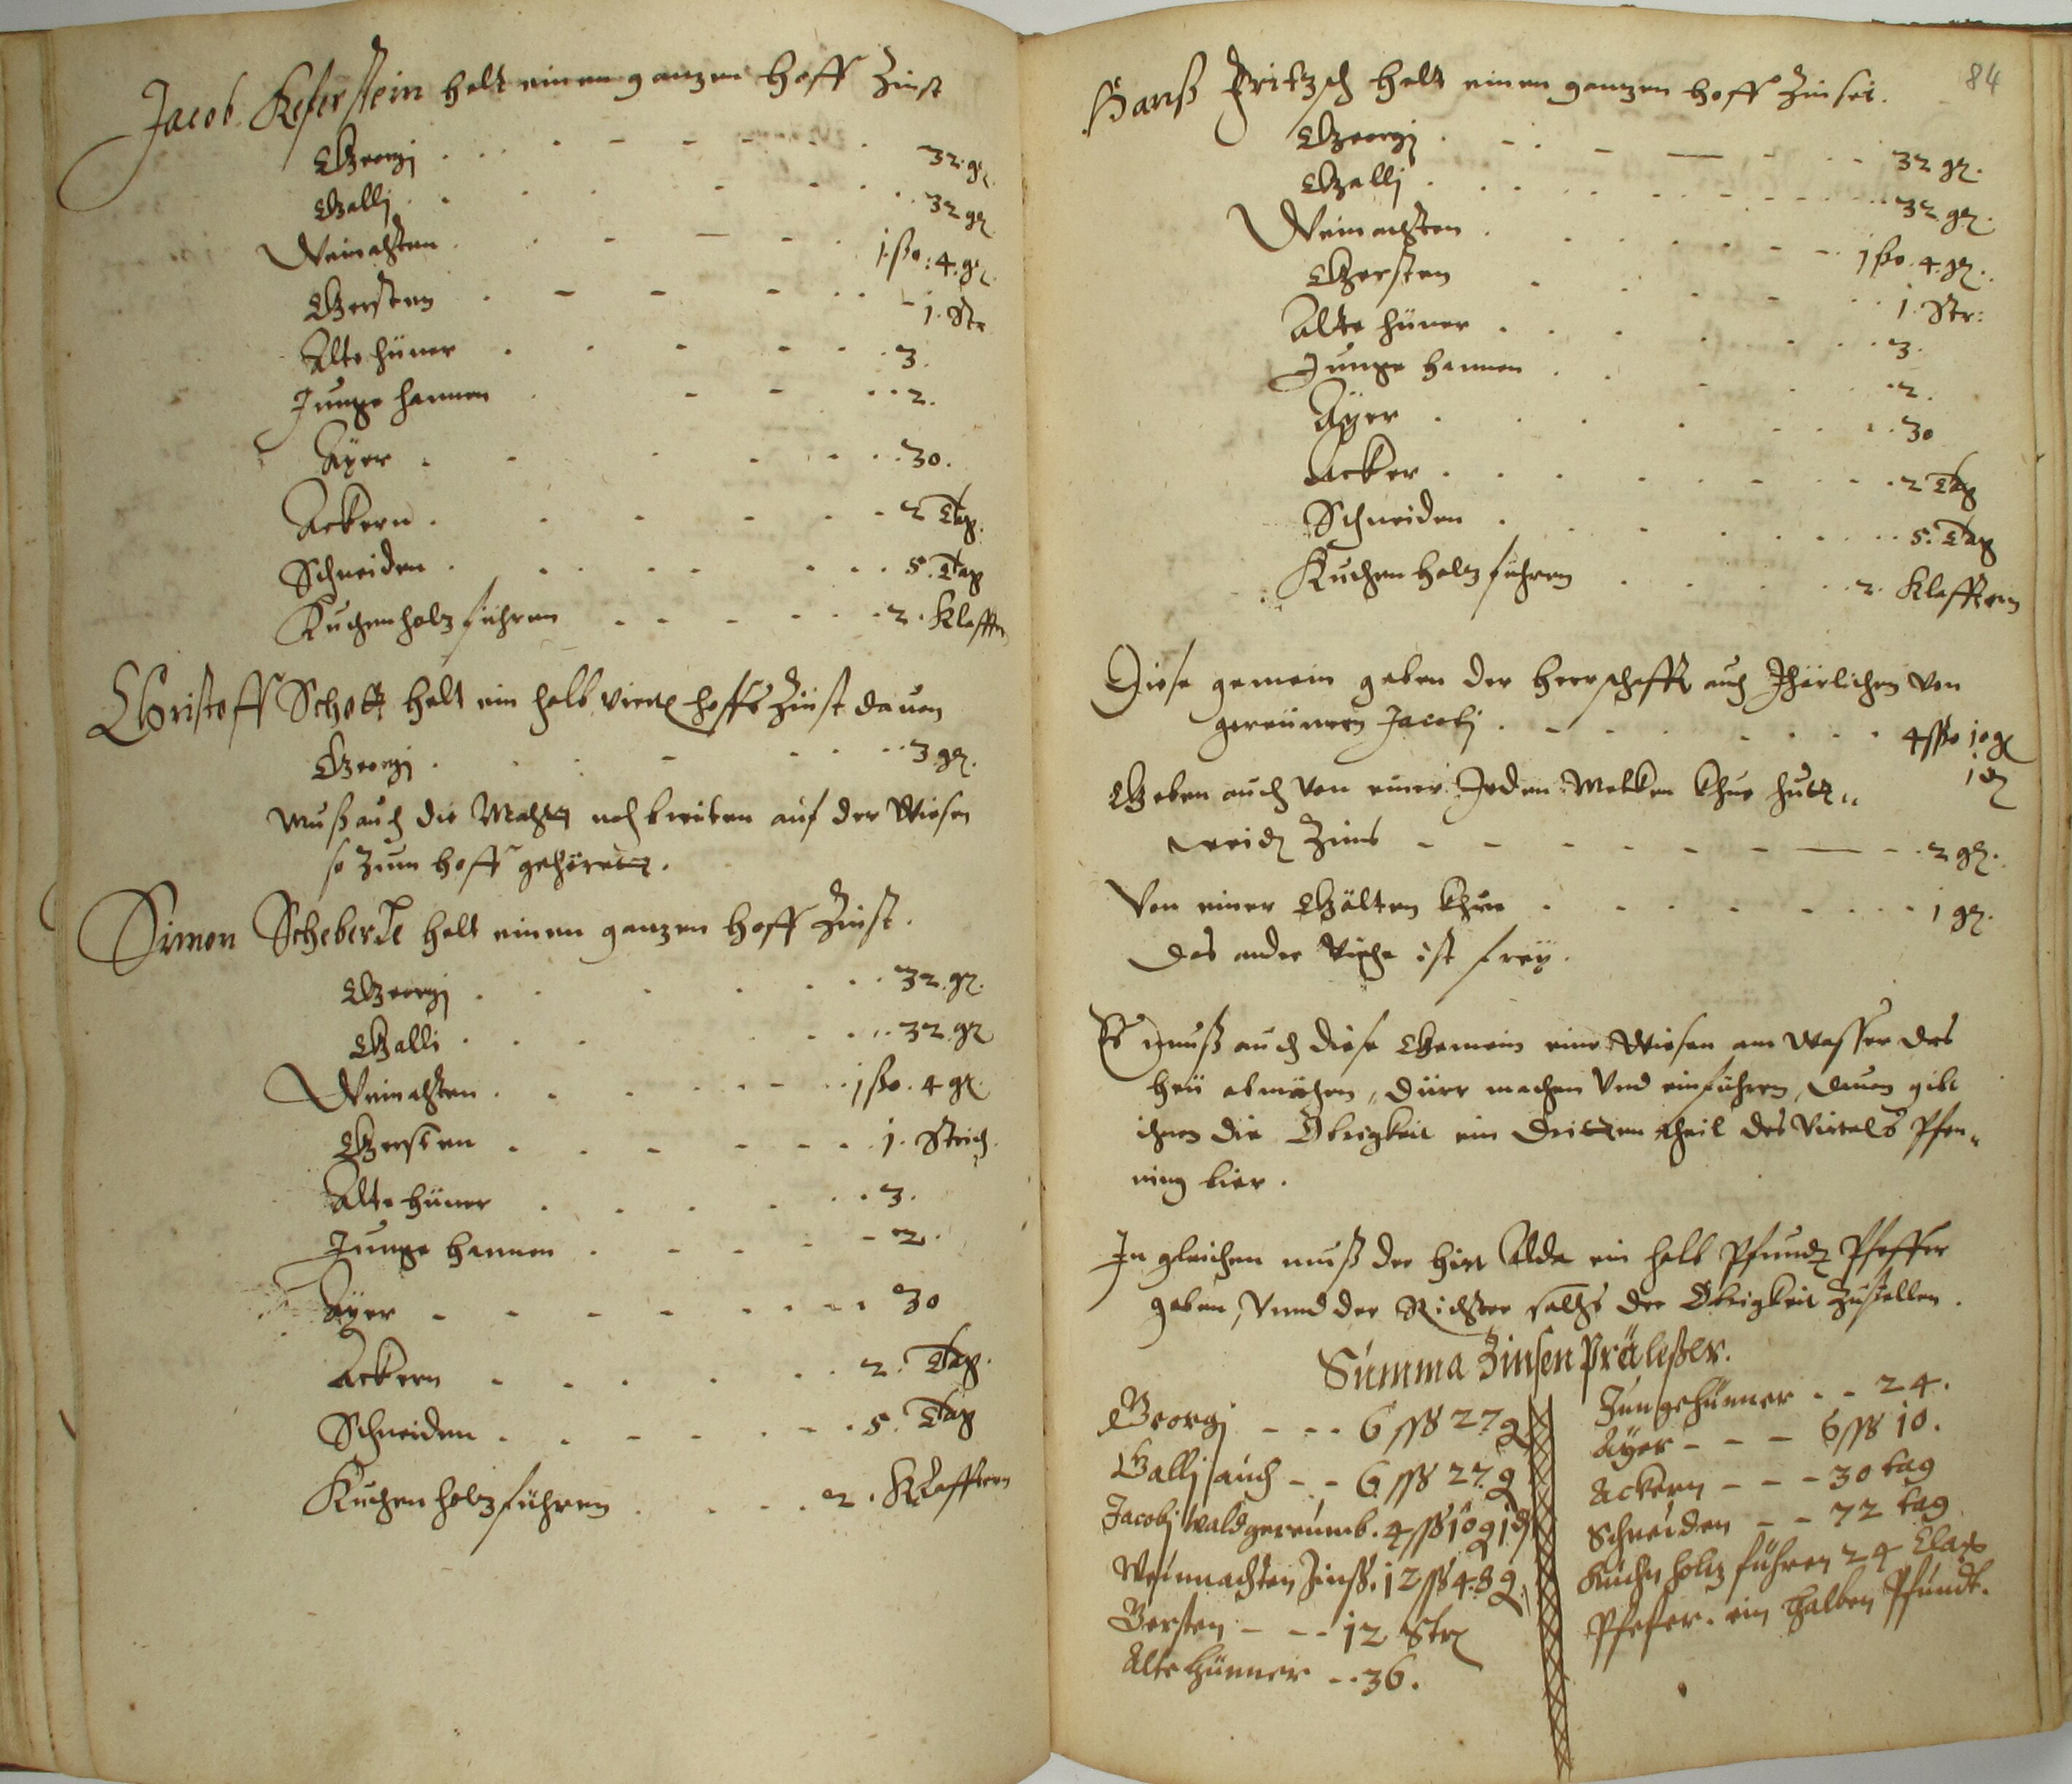 Jacob Keferstein helt einen ganzen Hoff Zinst
Georgj . . . 32. gr.
Gallj . . . 32 gr.
Weinachten . . . 1. ßo: 4. gr.
Gersten . . . 1. Str
Alte hüner . . . 3.
Junge hannen . . . 2.
Ayer . . . 30.
Ackern . . . 2 Tag.
Schneiden . . . 5. Tag
Kuchenholz führen . . . 2. Klafftn
Christoff Schott helt ein halb viertl hoffs Zinst dauon
Georgj . . . 3 gr.
Muß auch die Mahtt
auf der Wiesen
so Zum Hoff gehörett.
Simon Scheberle helt einen ganzen Hoff Zinst.
Georgj . . . 32. gr.
Galli . . . 32 gr
Weinachten . . . 1 ßo. 4 gr.
Gersten . . . 1. Strich.
Alte hüner . . . 3.
Junge hannen . . . 2.
Ayer . . . 30
Ackern . . . 2. Tag.
Schneiden . . . 5. Tag
Kuchen holz führen . . . 2. Klafftern
84
Hanß Fritzsch helt einen ganzen hoff Zinset.
Georgj . . . 32 gr.
Gallj . . . 32 gr.
Weinachten . . . 1 ßo. 4. gr.
Gersten . . . 1. Str:
Alte hüner . . . 3.
Junge hannen . . . 2.
Ayer . . . 30
Acker . . . 2 Tag
Schneiden . . . 5. Tag
Kuchen holz führen . . . 2. Klafftern
Diese gemein geben der Herrschafft auch Jhärlichen von
gereümern Jacobj . . . 4 ßo 10 gr
1 d
Geben auch von einer Jeden Melken Khue hutt„
weid Zins . . . 2 gr.
Von einer Gälten Khue . . . 1 gr.
Das ander Viehe ist frey.
Es muß auch diese Gemein eine Wiesen am Wasser das
heü abmähen, dürr machen Vnd einführen, dauon gibt
ihnen die Obrigkeit ein Dritten theil des Virtels Pfen„
ning bier.
In gleichen muß der hirt Alda ein halb Pfundt Pfeffer
geben, Vnnd der Richter solchs der Obrigkeit Zustellen.
Summa Zinsen Präleßer.
Georgj - - - 6 ßß 27 g
Gallj auch - - 6 ßß 27 g
Jacobj waldgereümb. 4 ßß 10 g 1 d
Weinnachten Zinß. 12 ßß 48 g
Gersten - - - 12 Str
Alte hünner - - 36.
Junge hünner - - 24.
Ayer - - - 6 ßß 10.
Ackern - - - 30 tag
Schneiden - - 72 tag
Kuchn holz führen 24 Claft
Pfefer. ein halben Pfundt.